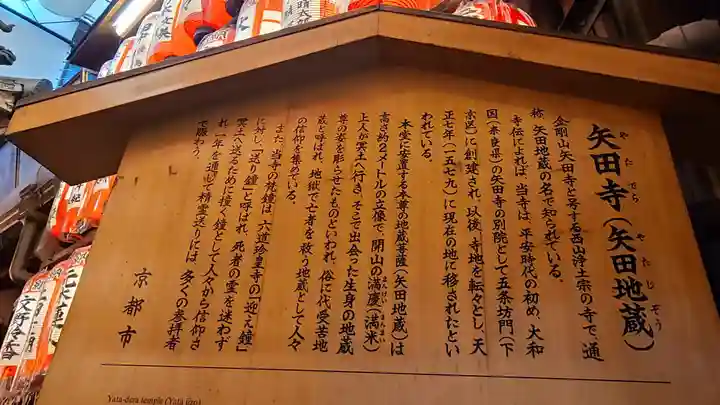 矢田寺（矢田地蔵）
やたでら
やたじぞう
金剛山矢田寺と号する西山浄土宗の寺で、通
称、矢田地蔵の名で知られている。
寺伝によれば、当寺は、平安時代の初め、大和
国（奈良県）の矢田寺の別院として五条坊門（下
京区）に創建され、以後、寺地を転々とし、天
正七年（一五七九）に現在の地に移されたとい
われている。
本堂に安置する本尊の地蔵菩薩（矢田地蔵）は
高さ約2メートルの立像で、開山の満慶（満米）
まんけい
まんまい
上人が冥土へ行き、そこで出会った生身の地蔵
尊の姿を彫らせたものといわれ、俗に代受苦地
蔵と呼ばれ、地獄で亡者を救う地蔵として人々
の信仰を集めている。
また、当寺の梵鐘は、六道珍皇寺の「迎え鐘」
に対し、「送り鐘」と呼ばれ、死者の霊を迷わず
冥土へ送るために撞く鐘として人々から信仰さ
れ、一年を通じて精霊送りには、多くの参拝者
で賑わう。
京都市
Yata-dera temple (Yata jizo)